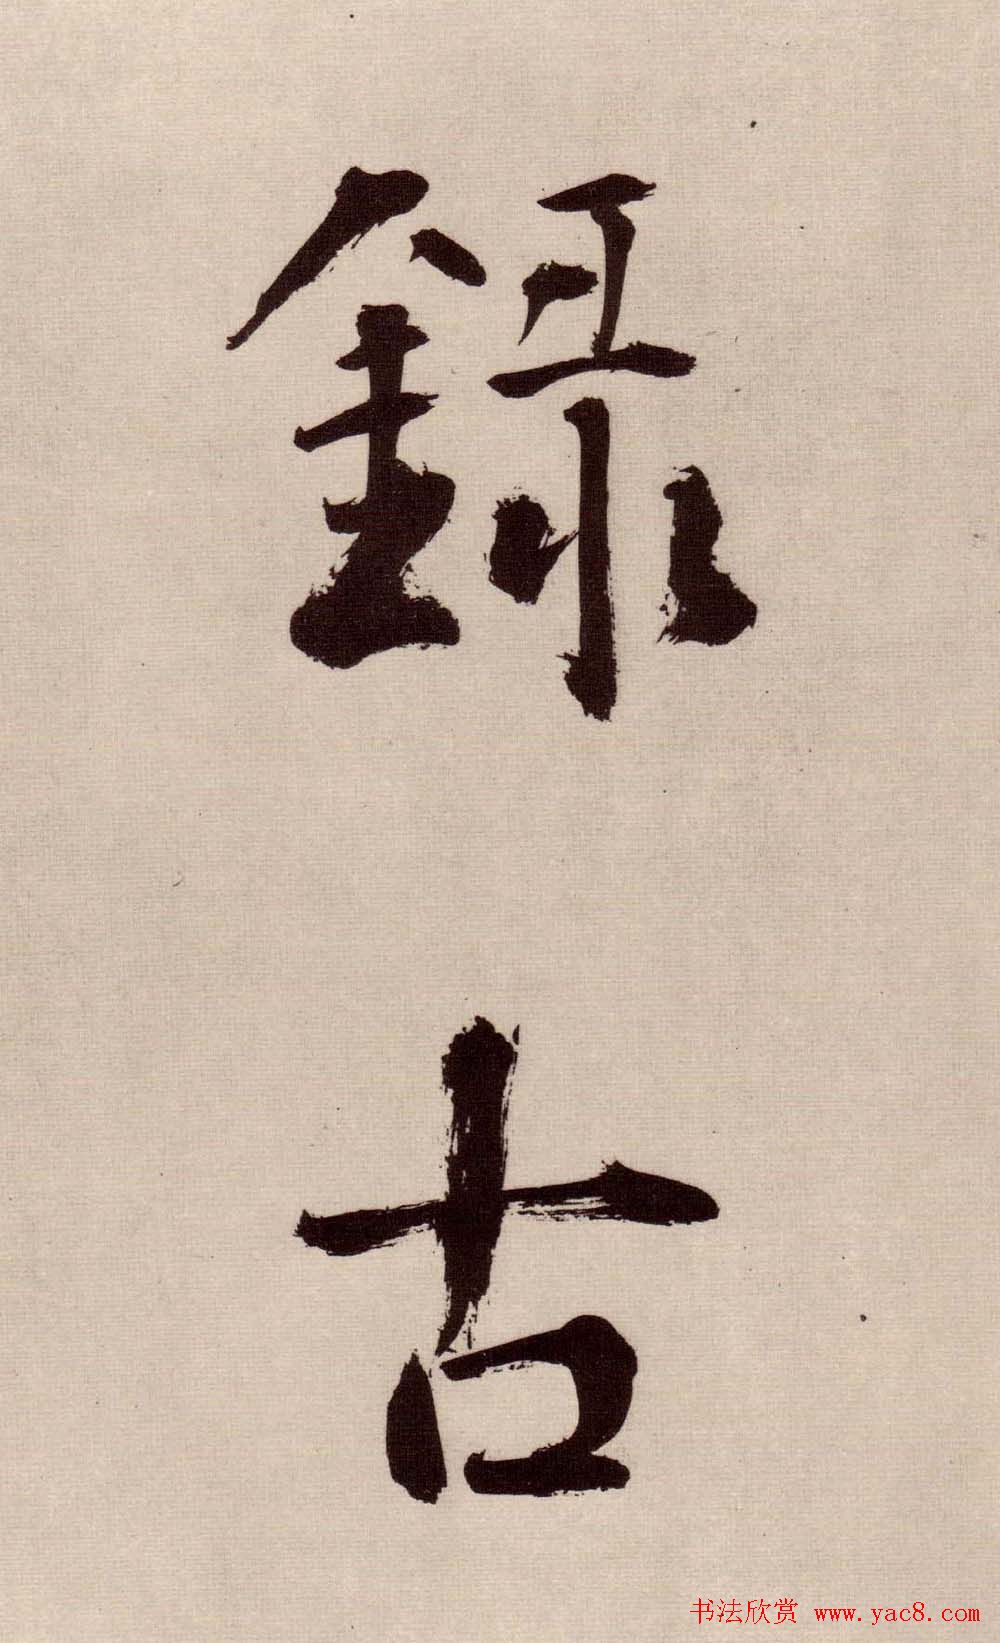 錄
古
书法欣赏 www.yac8.com